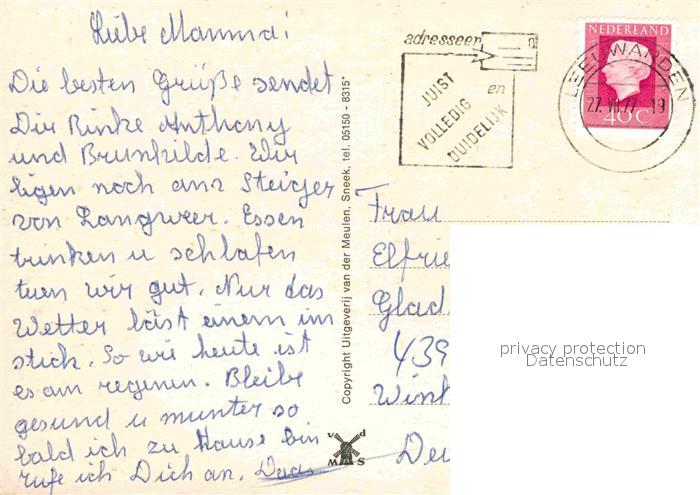 Liebe Mamma!
Die besten Grüße sendet
Dir Rinke Anthony
und Brunhilde. Wir
ligen noch am Steiger
von Langweer. Essen
trinken u schlafen
tuen wir gut. Nur das
Wetter läst einem im
stich. So wie heute ist
es am regenen. Bleibe
gesund u munter so
bald ich zu Hause bin
rufe ich Dich an.
Copyright Uitgeverij van der Meulen, Sneek, tel. 05150 - 8315*
v d
M S
adresseer
JUIST
VOLLEDIG
en
DUIDELIJK
LEEUWARDEN
27. VII. 77. 19
NEDERLAND
40 C
Frau
Elfrie
Glad
439
Wint
Deu
privacy protection
Datenschutz